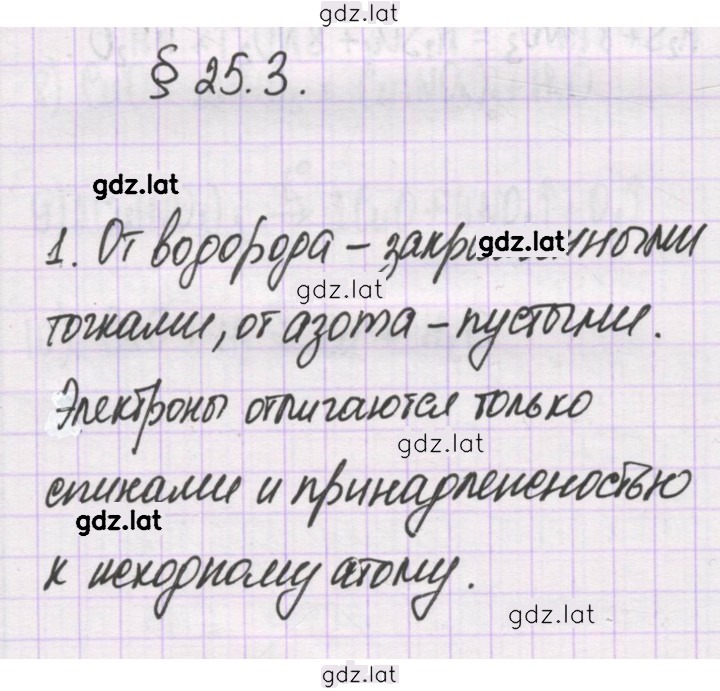 gdz.lat
§ 25.3.
gdz.lat
1. От водорода – закрашенными
gdz.lat
gdz.lat
точками, от азота – пустыми.
Электроны отличаются только
gdz.lat
спинами и принадлежностью
gdz.lat
к исходному атому.
gdz.lat
gdz.lat